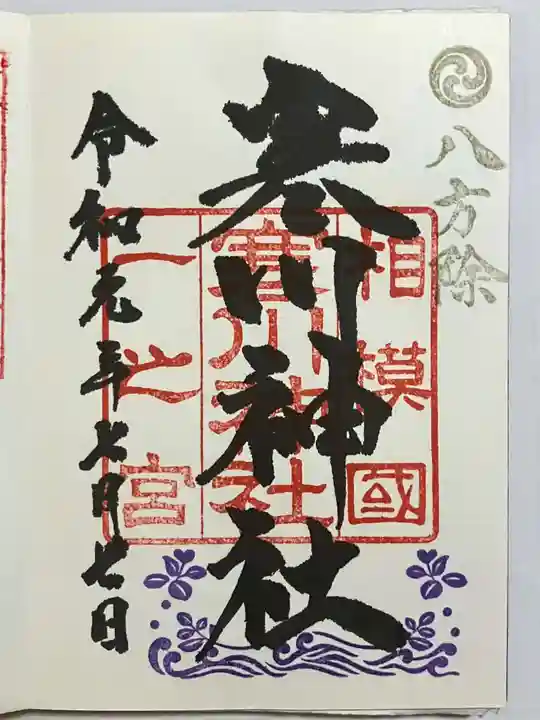 八方除
寒川神社
相模國
寒川神社
一之宮
令和元年七月七日